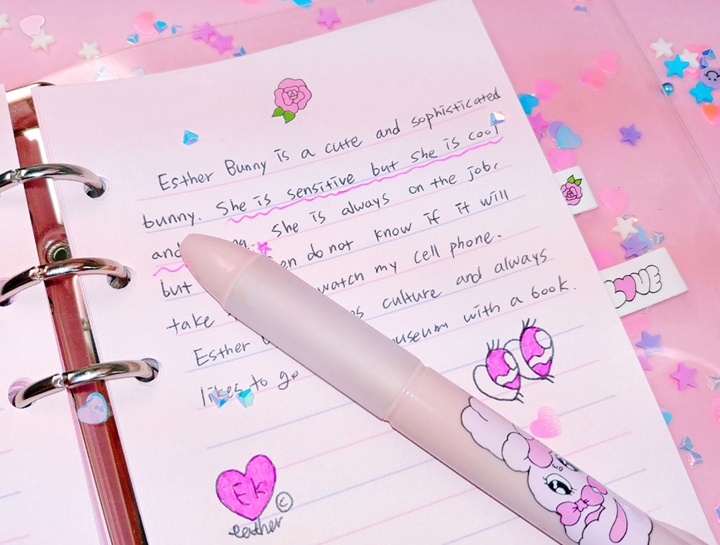 Esther Bunny is a cute and sophisticated
bunny. She is sensitive but she is cool
and She is always on the job,
but do not know if it will
take watch my cell phone.
Esther culture and always
likes to go museum with a book.
EK
©
esther
LOVE